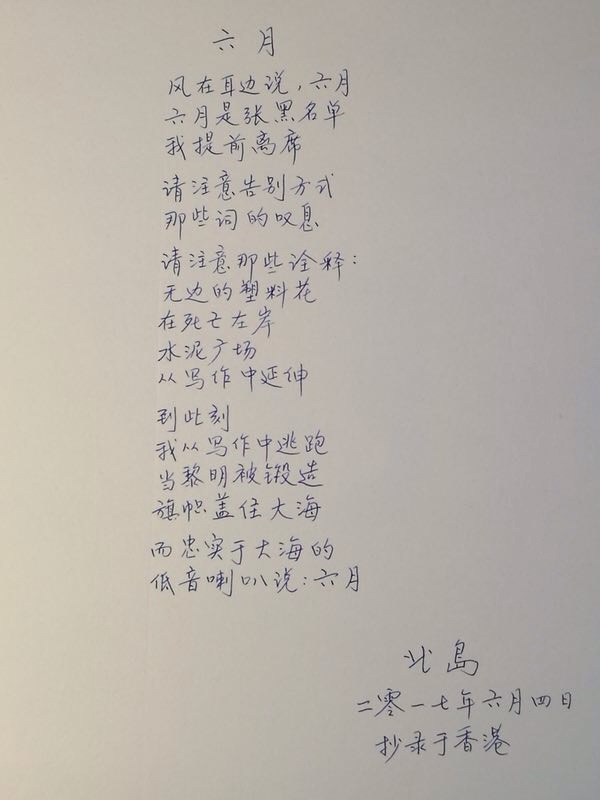 六月
风在耳边说，六月
六月是张黑名单
我提前离席
请注意告别方式
那些词的叹息
请注意那些诠释：
无边的塑料花
在死亡左岸
水泥广场
从写作中延伸
到此刻
我从写作中逃跑
当黎明被锻造
旗帜盖住大海
而忠实于大海的
低音喇叭说：六月
北岛
二零一七年六月四日
抄录于香港